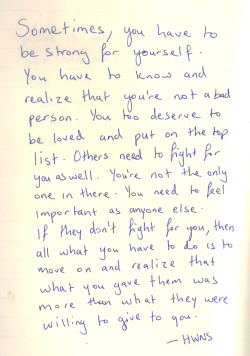 Sometimes, you have to
be strong for yourself.
You have to know and
realize that you're not a bad
person. You too deserve to
be loved and put on the top
list. Others need to fight for
you as well. You're not the only
one in there. You need to feel
important as anyone else.
If they don't fight for you, then
all what you have to do is to
move on and realize that
what you gave them was
more than what they were
willing to give to you.
— HWNS